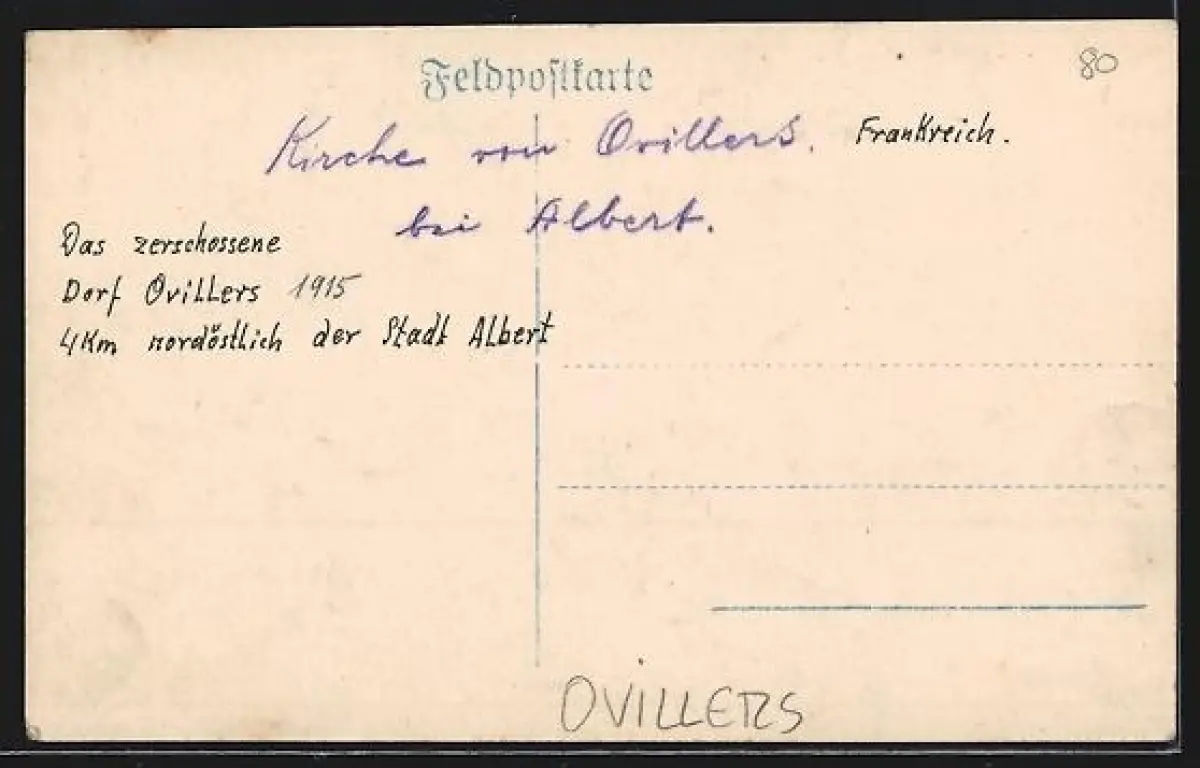 Feldpostkarte
80
Kirche von Ovillers. Frankreich.
bei Albert.
Das zerschossene
Dorf Ovillers 1915
4Km nordöstlich der Stadt Albert
OVILLERS